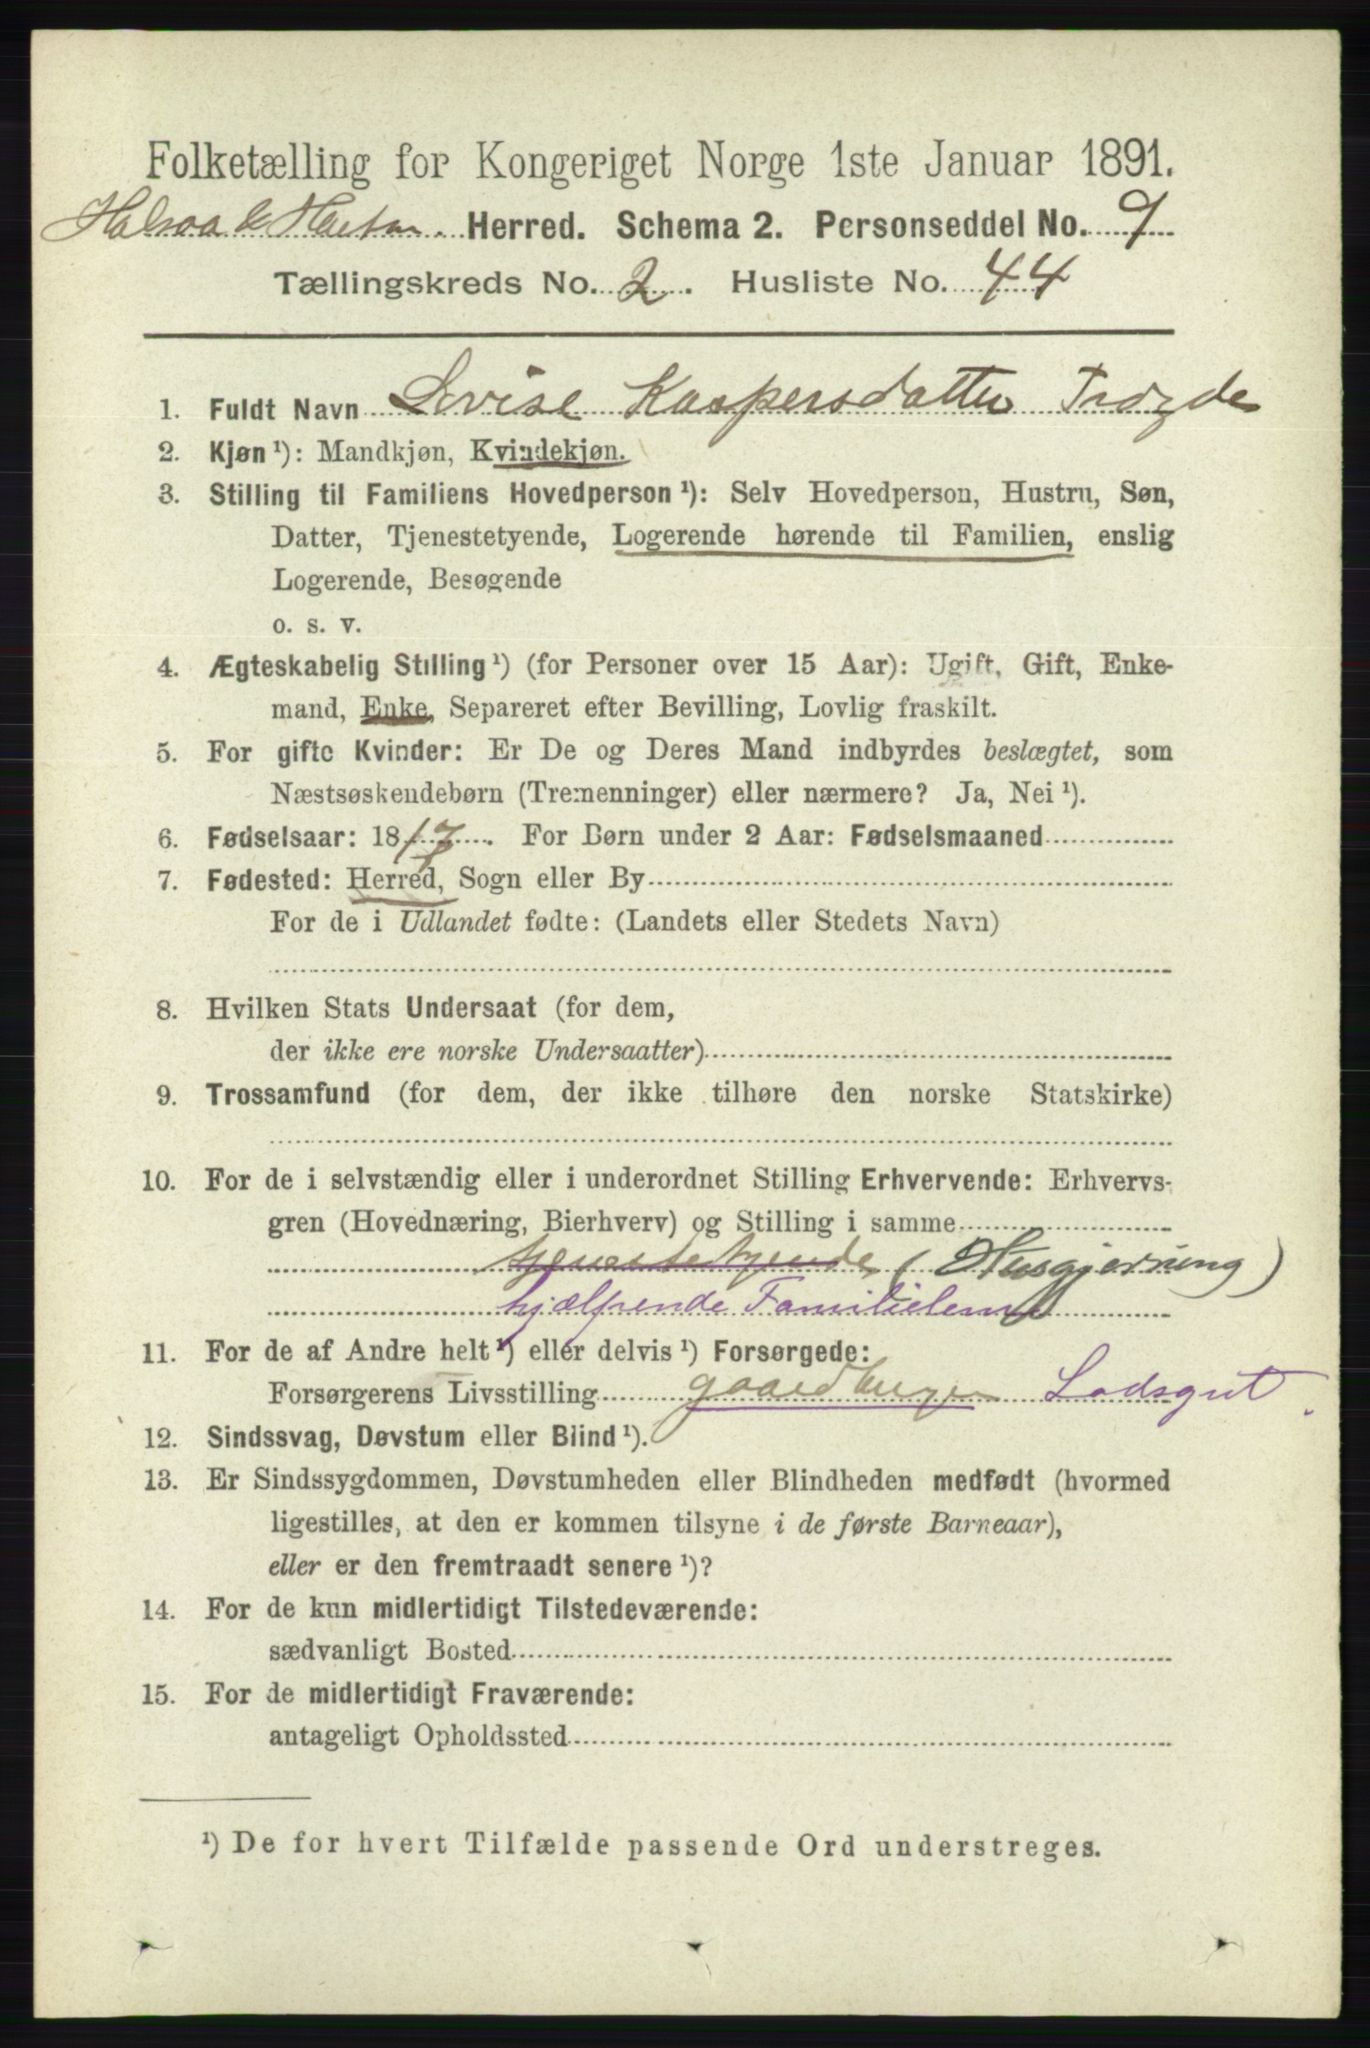 Folketælling for Kongeriget Norge 1ste Januar 1891.
Halsaa & Herred. Schema 2. Personseddel No. 9
Tællingskreds No. 2. Husliste No. 44
1. Fuldt Navn Lovise Kaspersdatter
2. Kjøn ¹): Mandkjøn, Kvindekjøn.
3. Stilling til Familiens Hovedperson ¹): Selv Hovedperson, Hustru, Søn,
Datter, Tjenestetyende, Logerende hørende til Familien, enslig
Logerende, Besøgende
o. s. v.
4. Ægteskabelig Stilling ¹) (for Personer over 15 Aar): Ugift, Gift, Enke-
mand, Enke, Separeret efter Bevilling, Lovlig fraskilt.
5. For gifte Kvinder: Er De og Deres Mand indbyrdes beslægtet, som
Næstsøskendebørn (Tremenninger) eller nærmere? Ja, Nei ¹).
6. Fødselsaar: 1817. For Børn under 2 Aar: Fødselsmaaned
7. Fødested: Herred, Sogn eller By
For de i Udlandet fødte: (Landets eller Stedets Navn)
8. Hvilken Stats Undersaat (for dem,
der ikke ere norske Undersaatter)
9. Trossamfund (for dem, der ikke tilhøre den norske Statskirke)
10. For de i selvstændig eller i underordnet Stilling Erhvervende: Erhvervs-
gren (Hovednæring, Bierhverv) og Stilling i samme
tjenestetyende (Husgjerning)
hjælpende Familielem
11. For de af Andre helt ¹) eller delvis ¹) Forsørgede:
Forsørgerens Livsstilling gaardbruger Lodsgut.
12. Sindssvag, Døvstum eller Blind ¹).
13. Er Sindssygdommen, Døvstumheden eller Blindheden medfødt (hvormed
ligestilles, at den er kommen tilsyne i de første Barneaar),
eller er den fremtraadt senere ¹)?
14. For de kun midlertidigt Tilstedeværende:
sædvanligt Bosted
15. For de midlertidigt Fraværende:
antageligt Opholdssted
¹) De for hvert Tilfælde passende Ord understreges.